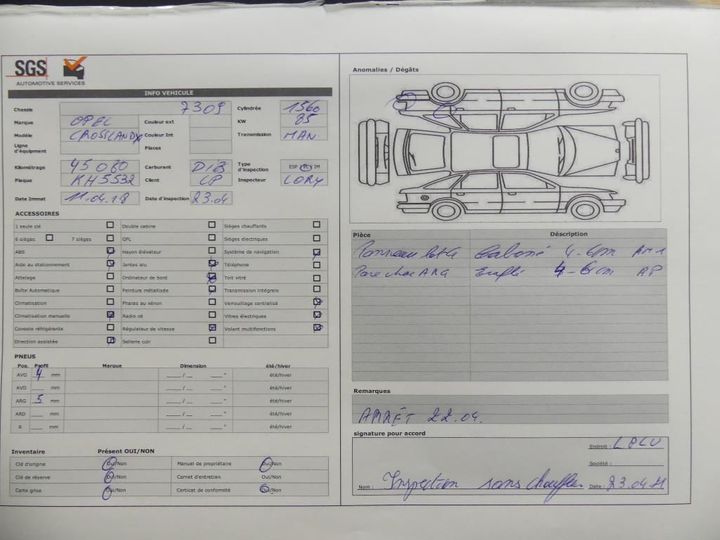 SGS
AUTOMOTIVE SERVICES
INFO VEHICULE
Chassis 7309 Cylindrée 1560
Marque OPEL Couleur ext KW 85
Modèle CROSSLANDX Couleur Int Transmission MAN
Ligne d'équipement Places
Kilométrage 45080 Carburant DIE Type d'inspection ESP IM
Plaque KH5532 Client LP Inspecteur LORY
Date Immat 11.04.18 Date d'inspection 23.04
ACCESSOIRES
1 seule clé Double cabine Sièges chauffants
6 sièges 7 sièges GPL Sièges électriques
ABS Hayon élévateur Système de navigation
Aide au stationnement Jantes alu Téléphone
Attelage Ordinateur de bord Toit vitré
Boîte Automatique Peinture métallisée Transmission intégrale
Climatisation Phares au xénon Verrouillage centralisé
Climatisation manuelle Radio cd Vitres électriques
Console réfrigérante Régulateur de vitesse Volant multifonctions
Direction assistée Sellerie cuir
PNEUS
Pos. Profil Marque Dimension été/hiver
AVG 4 mm ____/__ ____" été/hiver
AVD ___ mm ____/__ ____" été/hiver
ARG 5 mm ____/__ ____" été/hiver
ARD ___ mm ____/__ ____" été/hiver
R ___ mm ____/__ ____" été/hiver
Inventaire Présent OUI/NON
Clé d'origine Oui/Non Manuel de propriétaire Oui/Non
Clé de réserve Oui/Non Carnet d'entretien Oui/Non
Carte grise Oui/Non Certicat de conformité Oui/Non
Anomalies / Dégâts
Pièce Déscription
4-6cm
Pare choc ARG 4-6cm
Remarques
ARRÊT 22.04.
signature pour accord
Endroit : LPLU
Société :
Nom : Inspection sans chauffeur Date : 23.04.21